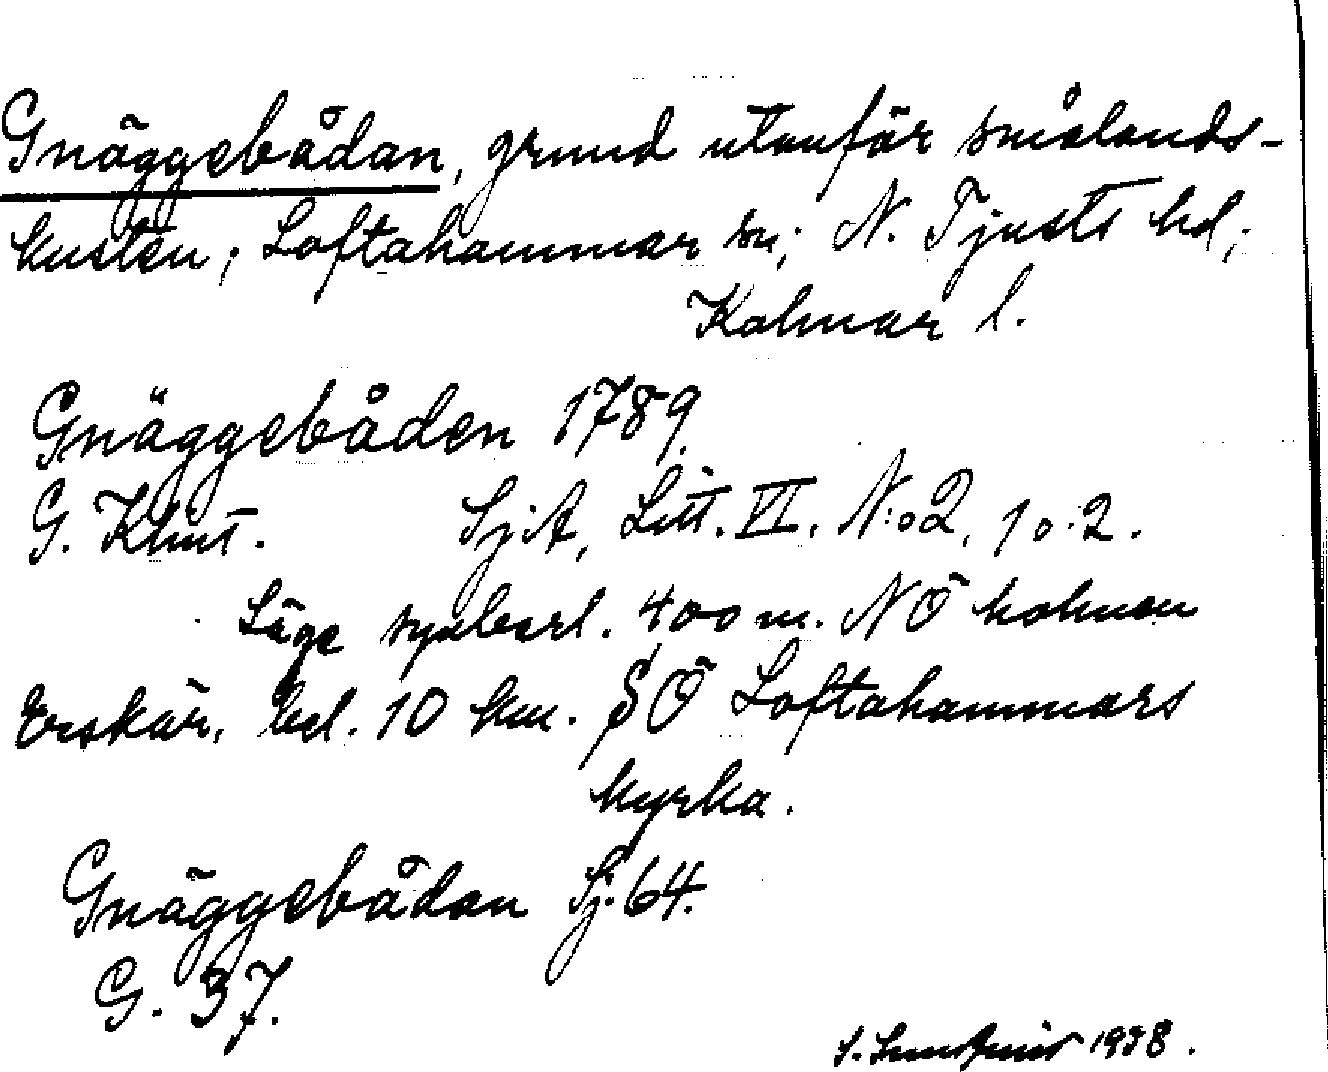 Gnäggebådan, grund utanför smålands-
kusten; Loftahammar sn; N. Tjusts hd;
Kalmar l.
Gnäggebåden 1789.
G. Klint. SjA, Litt. VI. N:o 2, 1 o. 2.
Läge synbarl. 400 m. NÖ holmen
Erskär, bel. 10 km. SÖ Loftahammars
kyrka.
Gnäggebådan Sj. 64.
G. 37.
1938.